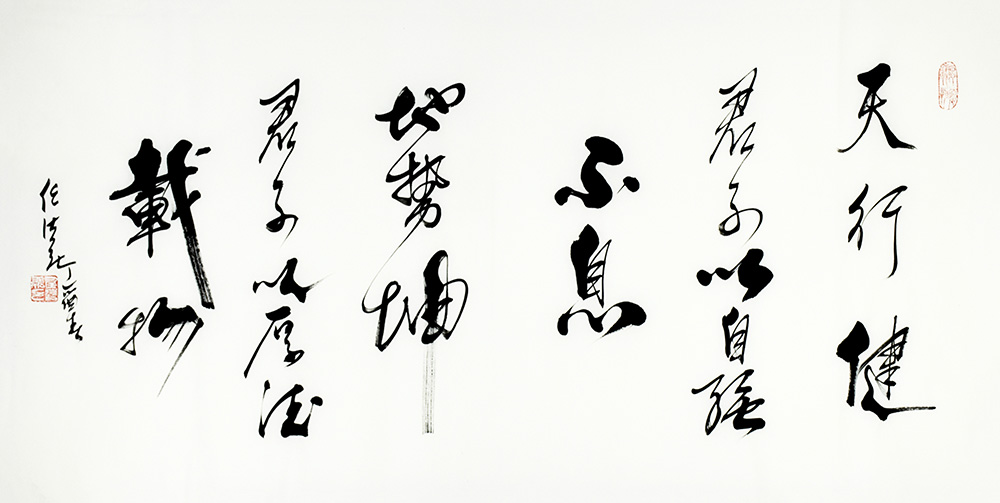 天行健
君子以自强
不息
地势坤
君子以厚德
載物